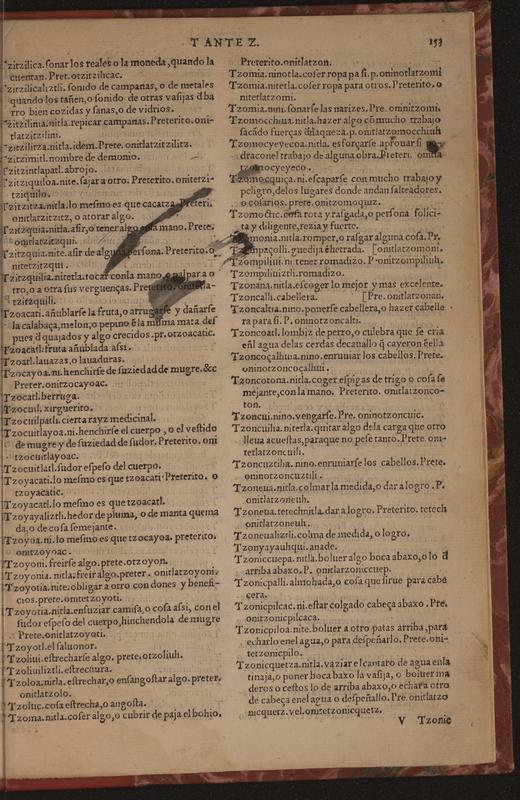 TANTE Z.
153
Tzitzilica. sonar los reales o la moneda, quando la
cuentan. Pret. otzitzilicac.
Tzitzilicaliztli. sonido de campanas, o de metales
quando los tañen, o sonido de otras vasijas d̄ ba
rro bien cozidas y sanas, o de vidrios.
Tzitzilinia. nitla. repicar campanas. Preterito. oni-
tlatzitzilini.
Tzitzilitza. nitla. idem. Prete. onitlatzitzilitz.
Tzitzimitl. nombre de demonio.
Tzitzintlapatl. abrojo.
Tzitziquiloa. nite. sajar a otro. Preterito. onitetzi-
tziquilo.
Tzitzitza. nitla. lo mesmo es que cacatza. Preteri.
onitlatzitzitz, o atorar algo.
Tzitzquia. nitla. asir, o tener algo cō la mano. Prete.
onitlatzitzqui.
Tzitzquia. nite. asir de alguna persona. Preterito. o
nitetzitzqui.
Tzitzquilia. nitetla. tocar con la mano, o palpar a o
tro, o a otra sus verguenças. Preterito. onitetla-
tzitzquili.
Tzoacati. añublarse la fruta, o arrugarse y dañarse
la calabaça, melon, o pepino ē la misma mata des
pues d̄ quajados y algo crecidos. pr. otzoacatic.
Tzoacatl. fruta añublada assi.
Tzoatl. lauazas, o lauaduras.
Tzocayoa. ni. henchirse de suziedad de mugre. &c
Preter. onitzocayoac.
Tzocatl. berruga.
Tzocuil. xirguerito.
Tzocuilpatli. cierta rayz medicinal.
Tzocuitlayoa. ni. henchirse el cuerpo, o el vestido
de mugre y de suziedad de sudor. Preterito. oni
tzocuitlayoac.
Tzocuitlatl. sudor espeso del cuerpo.
Tzoyacati. lo mesmo es que tzoacati. Preterito. o
tzoyacatic.
Tzoyacatl. lo mesmo es que tzoacatl.
Tzoyayaliztli. hedor de pluma, o de manta quema
da, o de cosa semejante.
Tzoyoa. ni. lo mesmo es que tzocayoa. preterito.
onitzoyoac.
Tzoyoni. freirse algo. prete. otzoyon.
Tzoyonia. nitla. freir algo. preter. onitlatzoyoni.
Tzoyotia. nite. obligar a otro con dones y benefi-
cios. prete. onitetzoyoti.
Tzoyotia. nitla. ensuziar camisa, o cosa assi, con el
sudor espeso del cuerpo, hinchendola de mugre
Prete. onitlatzoyoti.
Tzoyotl. el saluonor.
Tzoliui. estrecharse algo. prete. otzoliuh.
Tzoliuiliztli. estrechura.
Tzoloa. nitla. estrechar, o ensangostar algo. preter.
onitlatzolo.
Tzoltic. cosa estrecha, o angosta.
Tzoma. nitla. coser algo, o cubrir de paja el bohio.
Preterito. onitlatzon.
Tzomia. ninotla. coser ropa pa si. p. oninotlatzomi
Tzomia. nitetla. coser ropa para otros. Preterito. o
nitetlatzomi.
Tzomia. nini. sonarse las narizes. Pre. oninitzomi.
Tzomocchiua. nitla. hazer algo cō mucho trabajo
sacādo fuerças d̄ flaqueza. p. onitlatzomocchiuh
Tzomocyeyecoa. nitla. esforçarse aprouar si
dra conel trabajo de alguna obra. Preteri. onitla
tzomocyeyeco.
Tzomocquiça. ni. escaparse con mucho trabajo y
peligro, de los lugares donde andan salteadores.
o cosarios. prete. onitzomoquiz.
Tzomoctic. cosa rota y rasgada, o persona solici-
ta y diligente, rezia y fuerte.
Tzomonia. nitla. romper, o rasgar alguna cosa. Pr.
Tzompaçolli. guedeja ēhetrada. [onitlatzomoni.
Tzompiliui. ni. tener romadizo. P. onitzompiliuh.
Tzompiliuiztli. romadizo.
Tzonana. nitla. escoger lo mejor y mas excelente.
Tzoncalli. cabellera. [Pre. onitlatzonan.
Tzoncaltia. nino. ponerse cabellera, o hazer cabelle
ra para si. P. oninotzoncalti.
Tzoncoatl. lombriz de perro, o culebra que se cria
eñl agua de las cerdas de cauallo q̄ cayeron eñlla
Tzoncoçalhuia. nino. enruuiar los cabellos. Prete.
oninotzoncoçalhui.
Tzoncotona. nitla. coger espigas de trigo o cosa se
mejante, con la mano. Preterito. onitlatzonco-
ton.
Tzoncui. nino. vengarse. Pre. oninotzoncuic.
Tzoncuilia. nitetla. quitar algo de la carga que otro
lleua acuestas, paraque no pese tanto. Prete. oni-
tetlatzoncuili.
Tzoncuztilia. nino. enruuiarse los cabellos. Prete.
oninotzoncuztili.
Tzoneua. nitla. colmar la medida, o dar a logro. P.
onitlatzoneuh.
Tzoneua. tetechnitla. dar a logro. Preterito. tetech
onitlatzoneuh.
Tzoneualiztli. colma de medida, o logro.
Tzonyayauhqui. anade.
Tzoniccuepa. nitla. boluer algo boca abaxo, o lo d̄
arriba abaxo. P. onitlatzoniccuep.
Tzonicpalli. almohada, o cosa que sirue para cabe
cera.
Tzonicpilcac. ni. estar colgado cabeça abaxo. Pre.
onitzonicpilcaca.
Tzonicpiloa. nite. boluer a otro patas arriba, para
echarlo enel agua, o para despeñarlo. Prete. oni-
tetzonicpilo.
Tzonicquetza. nitla. vaziar el cantaro de agua enla
tinaja, o poner boca baxo la vasija, o boluer ma
deros o cestos lo de arriba abaxo, o echar a otro
de cabeça enel agua o despeñallo. Pre. onitlatzo
nicquetz. vel. onitetzonicquetz.
V Tzonic